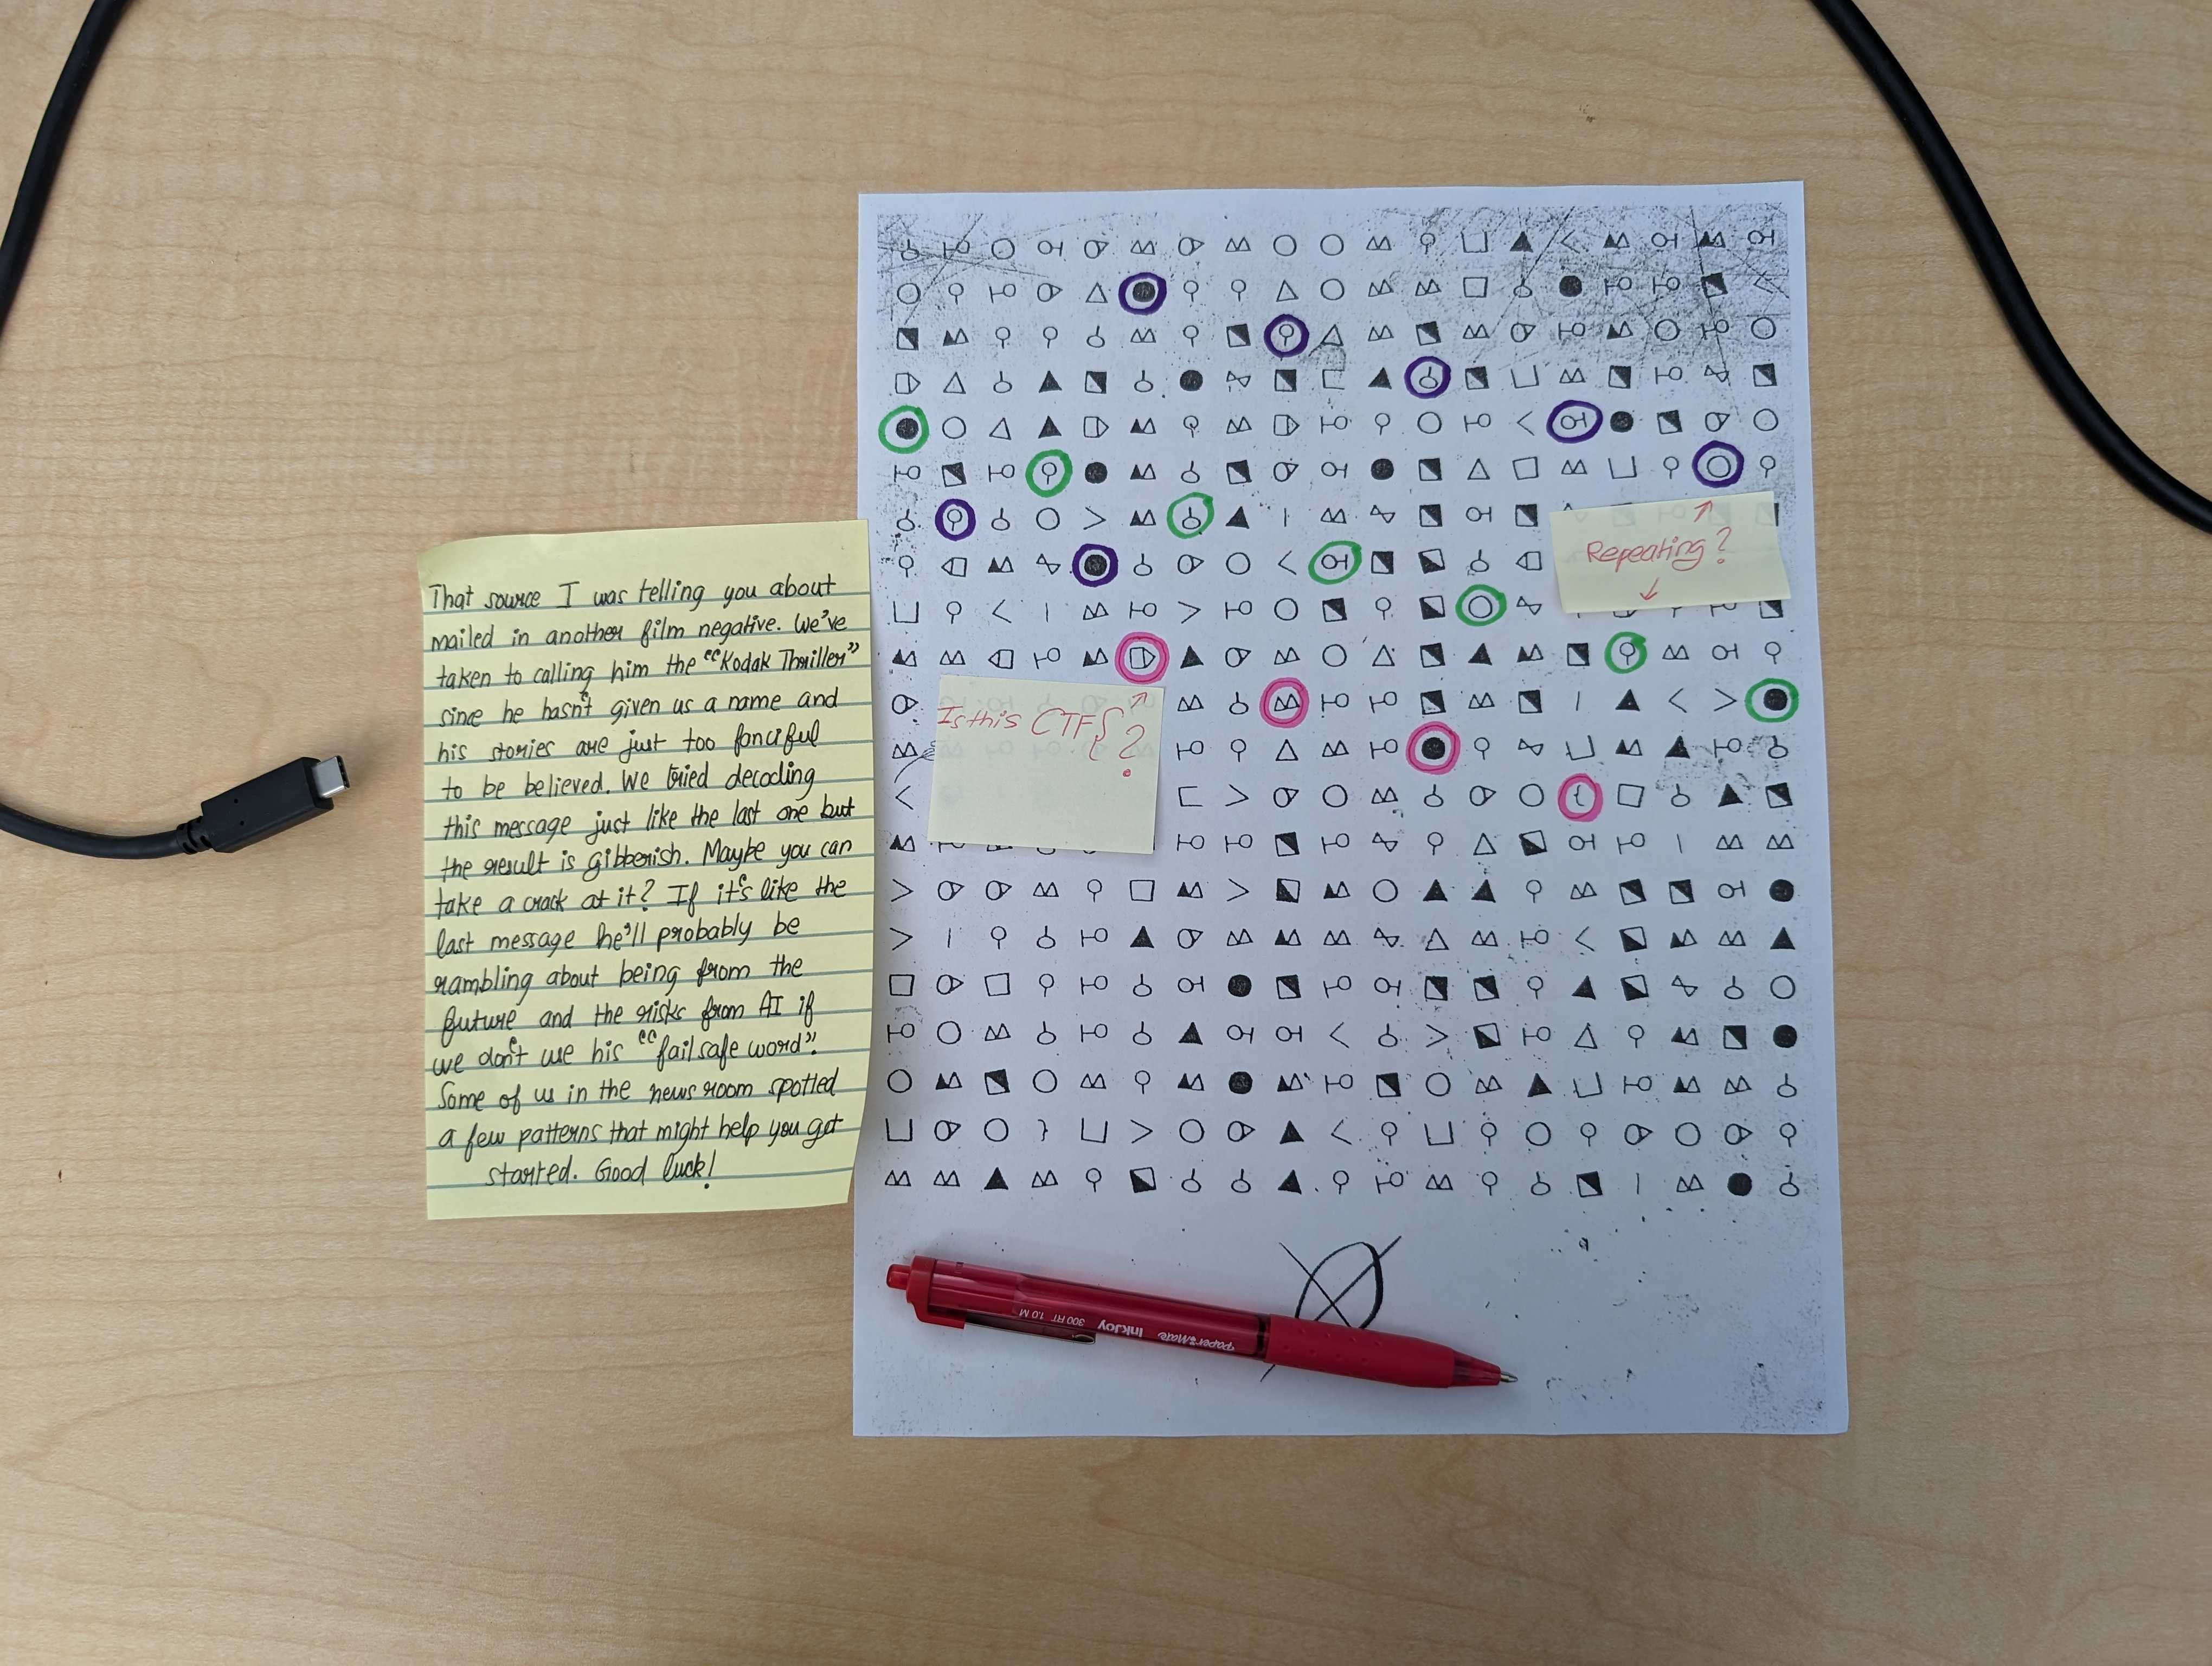 That source I was telling you about
mailed in another film negative. We've
taken to calling him the "Kodak Thriller"
since he hasn't given us a name and
his stories are just too fanciful
to be believed. We tried decoding
this message just like the last one but
the result is gibberish. Maybe you can
take a crack at it? If it's like the
last message he'll probably be
rambling about being from the
future and the risks from AI if
we don't use his "fail safe word".
Some of us in the news room spotted
a few patterns that might help you get
started. Good luck!
Repeating?
Is this CTF{
?
paper mate InkJoy 300 RT 1.0 M